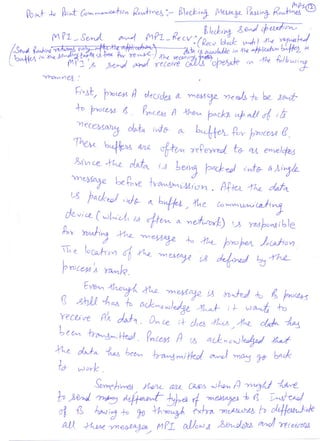 MPI ②
Point to Point Communication Routines:- Blocking Message Passing Routines
MPI_Send and MPI_Recv:
Blocking send operation
(Send Routine returns only after the application
buffer in the sending task is free for reuse)
(Recv block until the requested
data is available in the application buffer in
the receiving task)
MPI's send and receive calls operate in the following
manner:
First, process A decides a message needs to be sent
to process B. Process A then packs up all of its
necessary data into a buffer for process B.
These buffers are often referred to as envelopes
since the data is being packed into a single
message before transmission. After the data
is packed into a buffer, the communicating
device (which is often a network) is responsible
for routing the message to the proper location.
The location of the message is defined by the
process's rank.
Even though the message is routed to B, process
B still has to acknowledge that it wants to
receive A's data. Once it does this, the data has
been transmitted. Process A is acknowledged that
the data has been transmitted and may go back
to work.
Sometimes there are cases when A might have
to send many different types of messages to B. Instead
of B having to go through extra measures to differentiate
all these messages, MPI allows senders and receivers